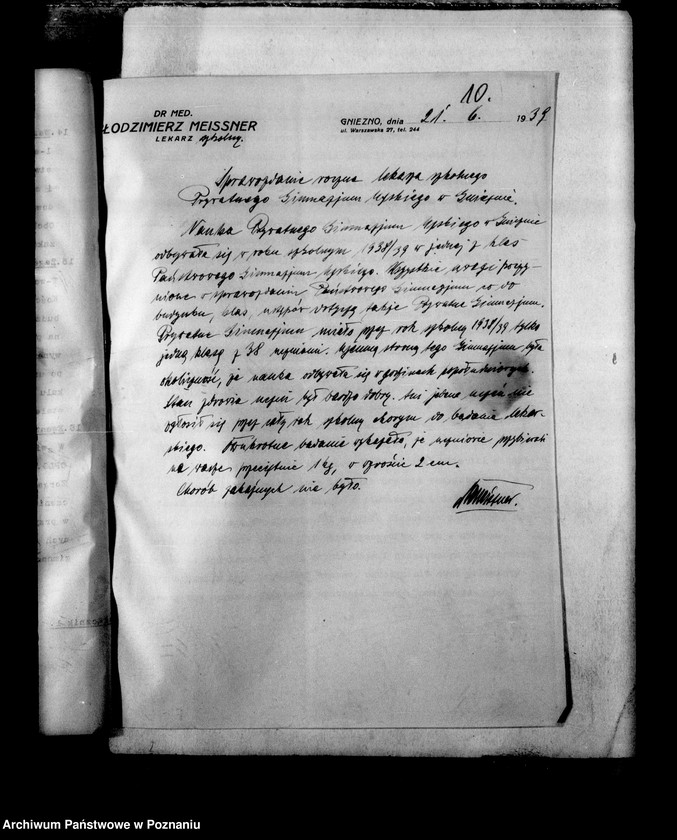 10.
DR MED.
ŁODZIMIERZ MEISSNER
LEKARZ szkolny.
GNIEZNO, dnia 21. 6. 1939
ul. Warszawska 27, tel. 244
Sprawozdanie roczne lekarza szkolnego
Prywatnego Gimnazjum Męskiego w Gnieźnie.
Nauka Prywatnego Gimnazjum Męskiego w Gnieźnie
odbywała się w roku szkolnym 1938/39 w jednej z klas
Państwowego Gimnazjum Męskiego. Wszystkie uwagi poczy-
nione w sprawozdaniu Państwowego Gimnazjum co do
budynku, klas, dotyczą także Prywatne Gimnazjum.
Prywatne Gimnazjum miało przez rok szkolny 1938/39 tylko
jedną klasę z 38 uczniami. Ujemną stroną tego Gimnazjum była
okoliczność, że nauka odbywała się w godzinach popołudniowych.
Stan zdrowia uczni był bardzo dobry. Ani jeden uczeń nie
zgłosił się przez cały rok szkolny chorym do badania lekar-
skiego. Dwukrotne badanie wykazało, że uczniowie przybierali
na wadze przeciętnie 1 kg, w wzroście 2 cm.
Chorób zakaźnych nie było.
Meissner.
Archiwum Państwowe w Poznaniu